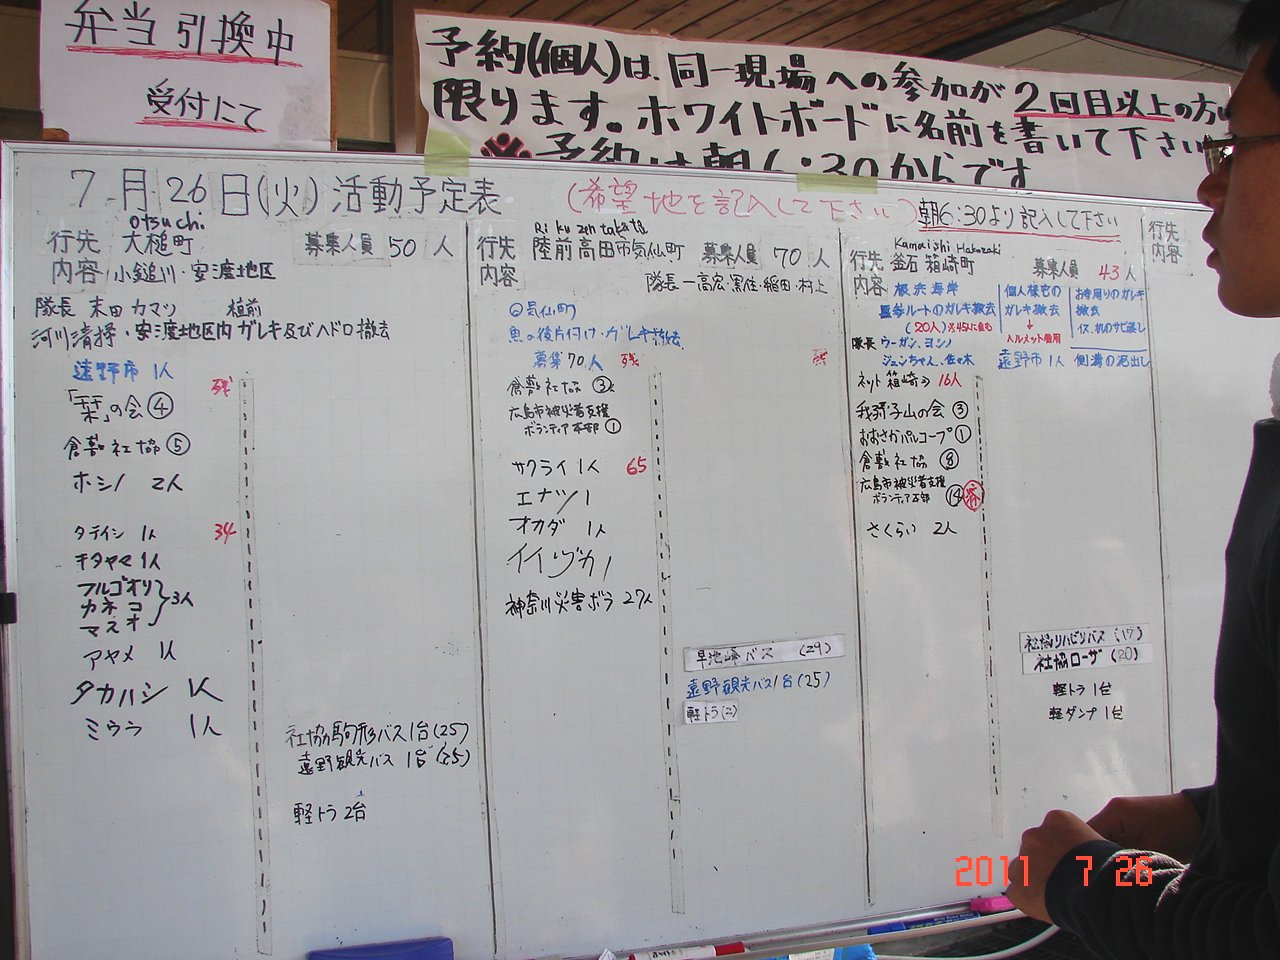 弁当引換中
受付にて
予約(個人)は、同一現場への参加が2回目以上の方に
限ります。ホワイトボードに名前を書いて下さい
※予約は朝6:30からです
7月26日(火)活動予定表
(希望地を記入して下さい)
朝6:30より記入して下さい
otsuchi
行先 大槌町
募集人員 50人
内容 小鎚川・安渡地区
隊長 末田 カマツ 植前
河川清掃・安渡地区内ガレキ及びヘドロ撤去
遠野市 1人
残
「栞」の会④
倉敷社協⑤
ホシノ 2人
タテイシ 1人
34
キタヤマ 1人
フルゴオリ
カネコ
マスオ
3人
アヤメ 1人
タカハシ 1人
ミウラ 1人
社協駒形バス1台(25)
遠野観光バス 1台(25)
軽トラ 2台
Rikuzentakata
行先 陸前高田市気仙町
募集人員 70人
内容
隊長 一高宏・黒住・稲田・村上
◎気仙町
魚の後片付け・ガレキ撤去
募集70人
残
残
倉敷社協
広島市被災者支援
ボランティア本部①
サクライ 1人
65
エナツ 1
オカダ 1人
イイヅカ 1
神奈川災害ボラ 27人
早池峰バス (29)
遠野観光バス1台(25)
軽トラ(二)
Kamaishi Hakozaki
行先 釜石 箱崎町
募集人員 43人
内容 根浜海岸
避難ルートのガレキ撤去
(20人)
個人様宅の
ガレキ撤去
↓
ヘルメット着用
お寺周りのガレキ
撤去
イス、机のサビ落し
側溝の泥出し
隊長 ウーガン、ヨシノ
ジュンちゃん、佐々木
遠野市 1人
ネット箱崎→ 16人
我孫子山の会③
おおさかパルコープ①
倉敷社協⑧
広島市被災者支援
ボランティア本部⑭
さくらい 2人
社協リハビリバス (17)
社協ローザ (20)
軽トラ 1台
軽ダンプ 1台
行先
内容
2011 7 26